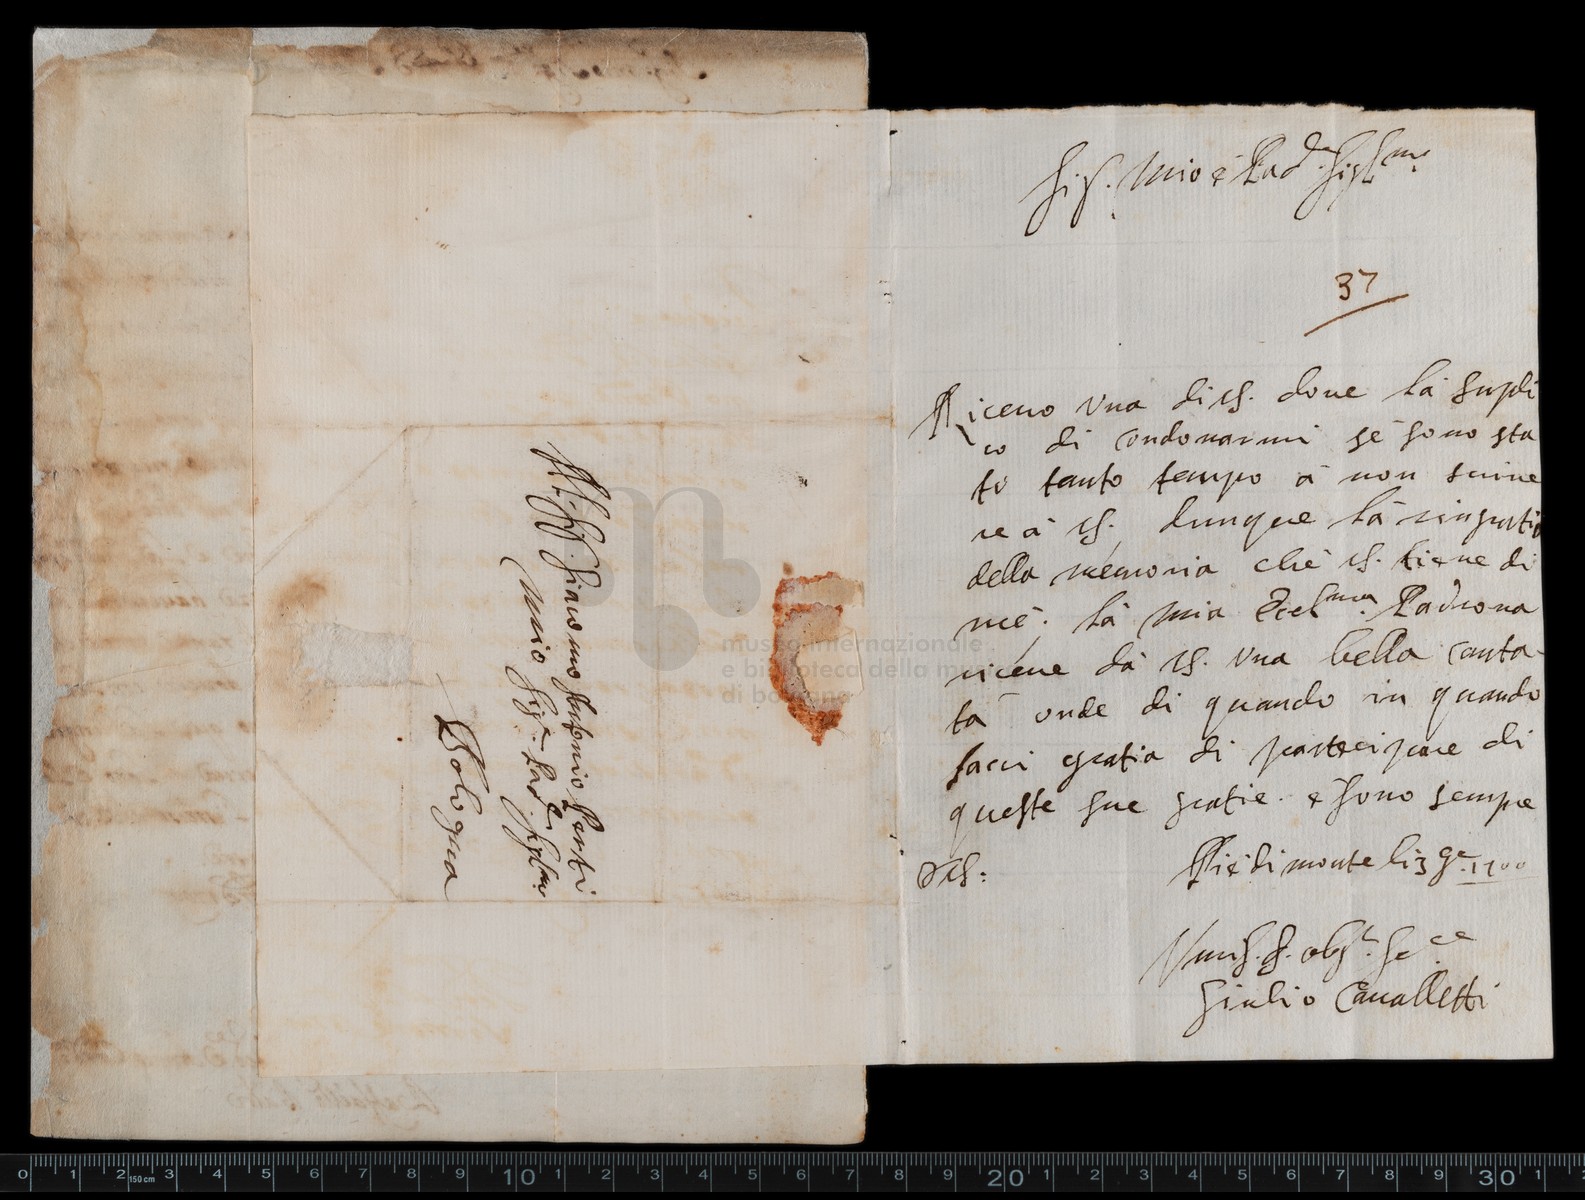 Sig.r Mio e Pad.ne Sig.mo
37
Riceuo vna di VS. doue la supli
co di condonarmi sé sono sta
to tanto tempo á non scriue
re á VS. dunque lá ringratio
della memoria ché VS. tiene di
mé. lá mia Ecel.ma Padrona
riceue dá VS. vna bella canta
ta onde di quando in quando
facci gratia di partecipare di
queste sue gratie. é sono sempre
Di VS:
Piedimonte li 3 9.e 1700
Vmil. S. obl. Se.ce
Giulio Caualletti
All Ill. Giacomo Antonio Perti
Mio Sig.r Pad.ne Sig.mo
Bologna
museo internazionale
e biblioteca della musica
di bologna
0 1 2 3 4 5 6 7 8 9 10 1 2 3 4 5 6 7 8 9 20 1 2 3 4 5 6 7 8 9 30 1
150 cm